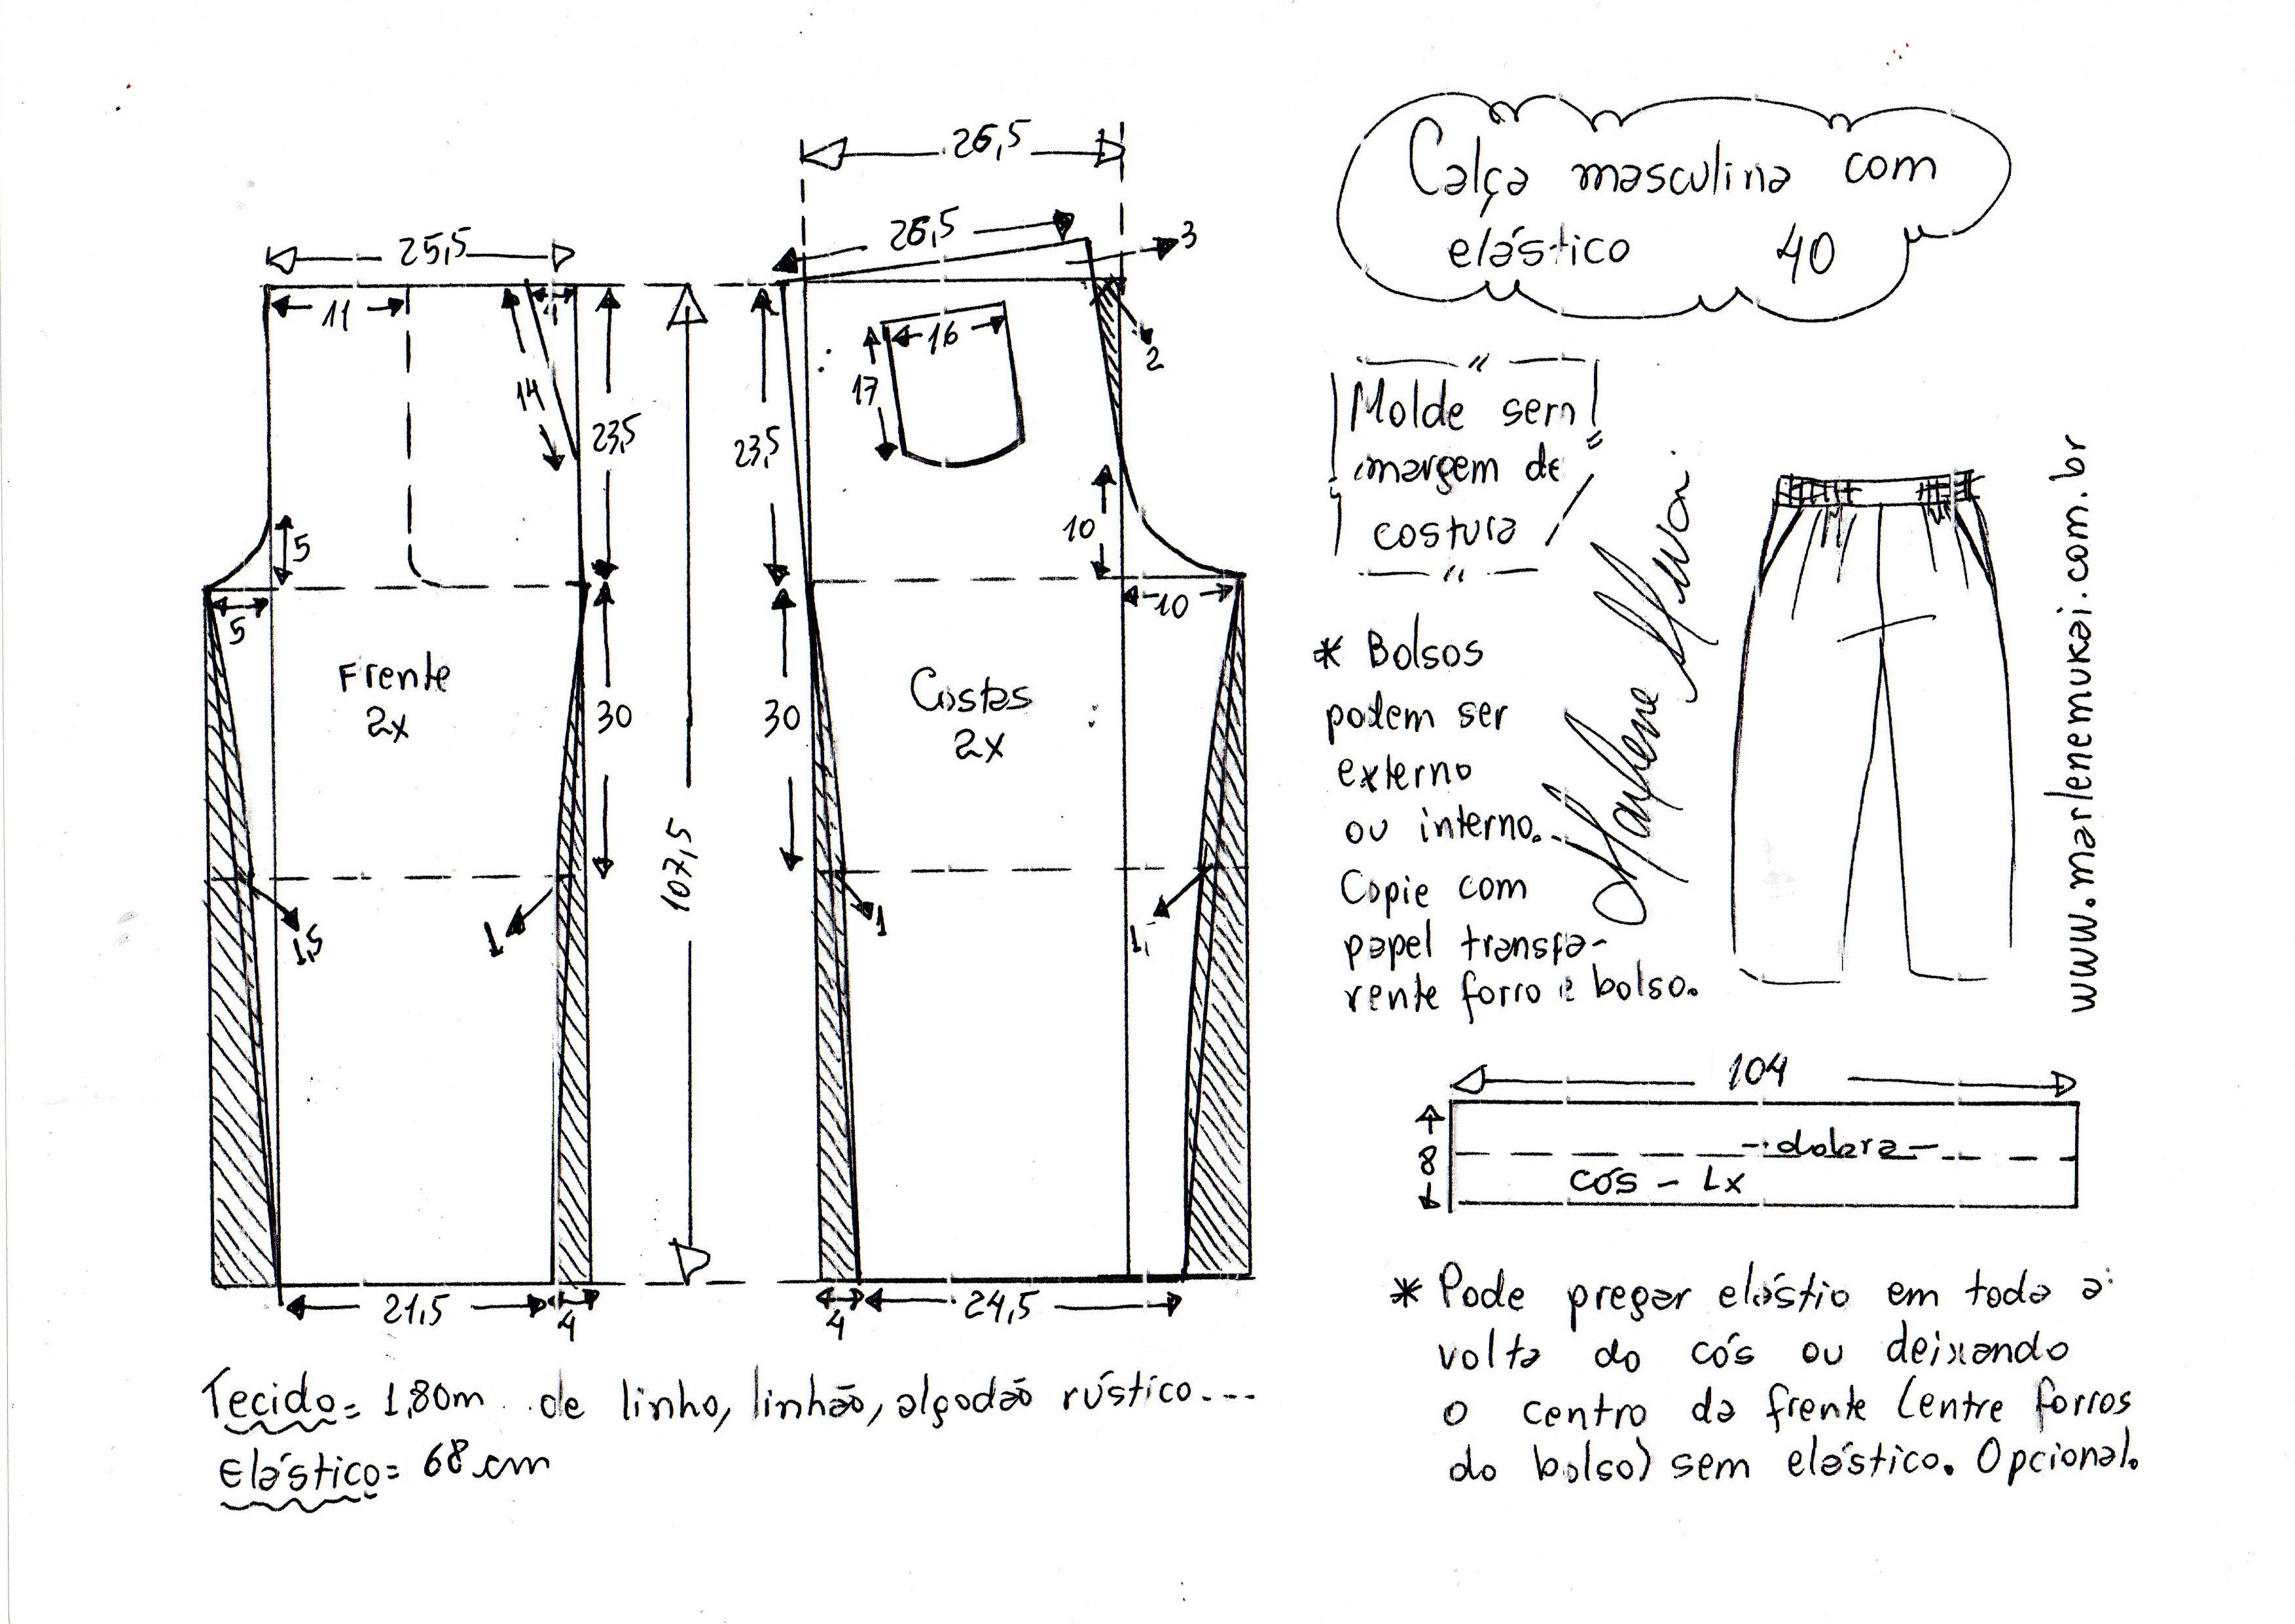 Calça masculina com
elástico 40
26,5
26,5
3
25,5
11
4
14
23,5
5
5
Frente
2x
30
1,5
1
21,5
4
107,5
23,5
16
17
2
10
10
Costas
2x
30
1
1,
4
24,5
Molde sem
margem de
costura
* Bolsos
podem ser
externo
ou interno.
Copie com
papel transpa-
rente forro e bolso.
www.marlenemukai.com.br
104
8
dobra
cós - 1x
* Pode pregar elástio em toda a
volta do cós ou deixando
o centro da frente (entre forros
do bolso) sem elástico. Opcional.
Tecido= 1,80m de linho, linhão, algodão rústico...
Elástico= 68 cm